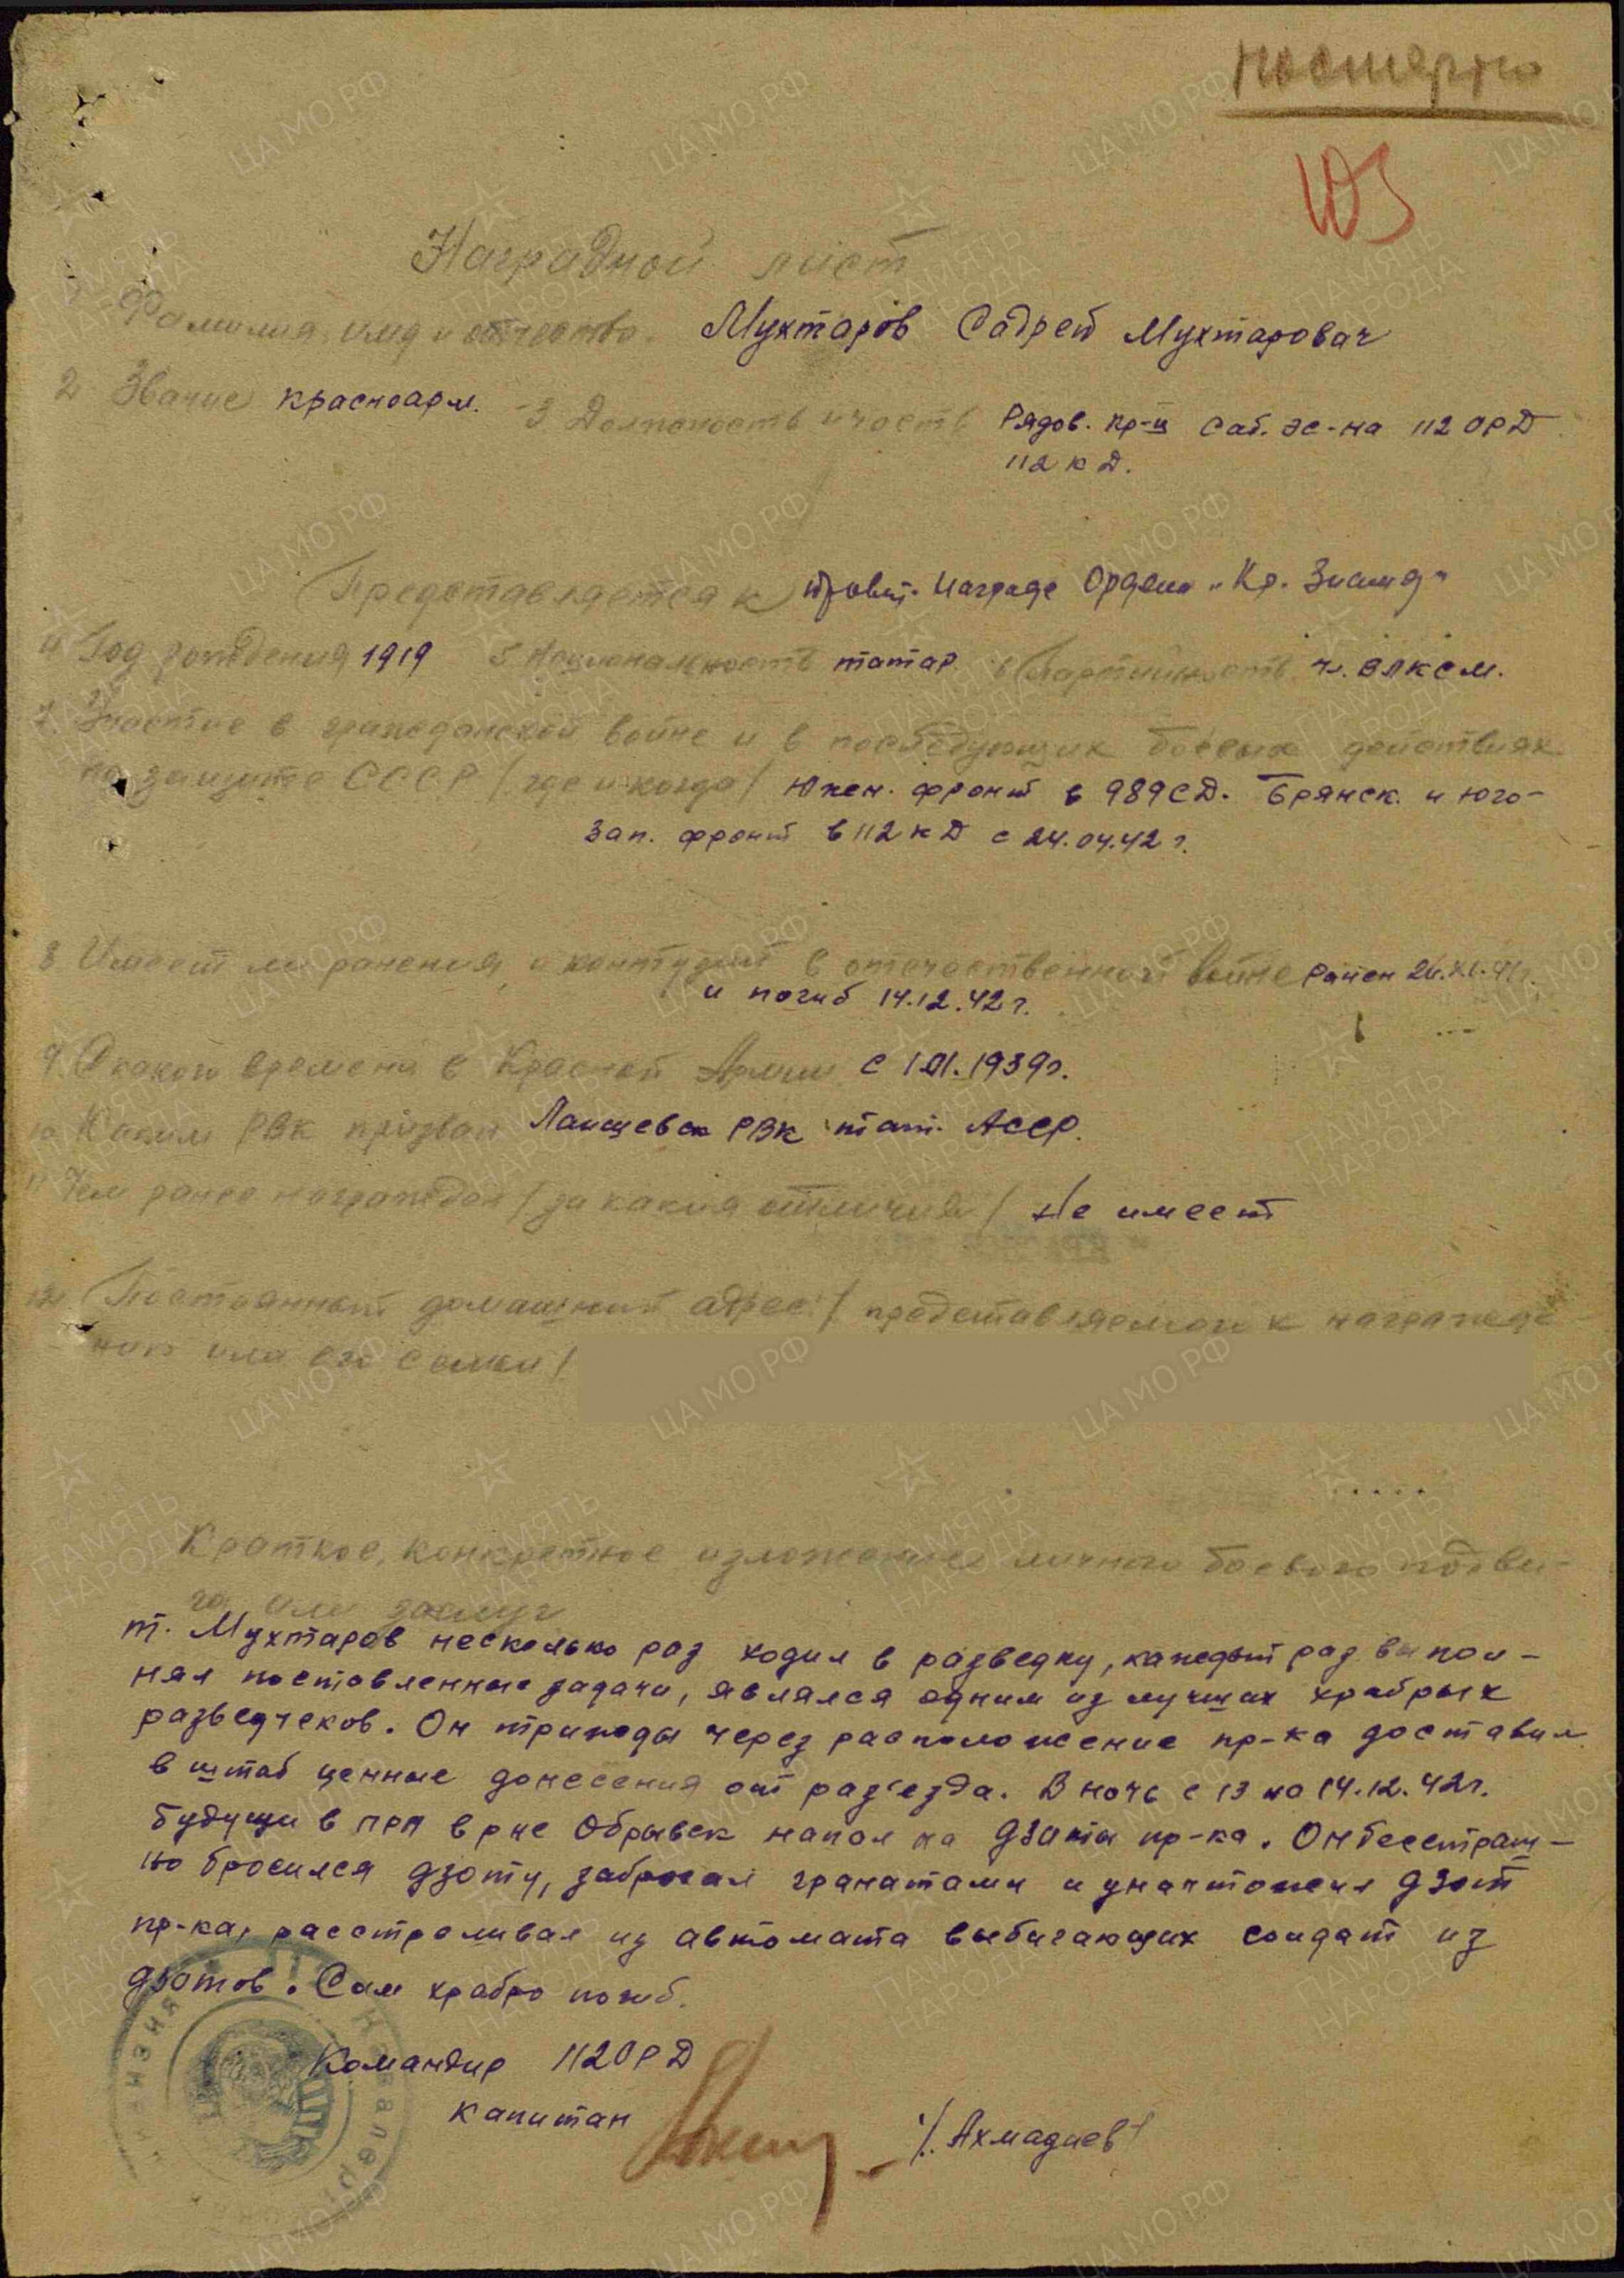 посмертно
ЮЗ
Наградной лист
Фамилия, имя и отчество. Мухтаров Садрей Мухтарович
2 Звание красноарм. 3 Должность и часть Рядов. кр-ц Саб. эс-на 112 ОРД
112 КД.
Представляется к правит. награде Орденом "Кр. Знамя"
4 Год рождения 1919 5 Национальность татар 6 Партийность ч. ВЛКСМ.
7. Участие в гражданской войне и в последующих боевых действиях
по защите СССР / где и когда / Южн. фронт в 989СД. Брянск. и Юго-
Зап. фронт в 112 КД с 24.04.42 г.
8 Имеет ли ранения и контузии в отечественной войне Ранен
и погиб 14.12.42 г.
9. С какого времени в Красной Армии С 1939г.
10 Каким РВК призван Лаишевск РВК тат. АССР.
11 Чем ранее награжден / за какия отличия / Не имеет
12. Постоянный домашний адрес / представляемого к награжде-
нию или его семьи /
Краткое, конкретное изложение личного боевого подви-
га или заслуг
т. Мухтаров несколько раз ходил в разведку, каждый раз выпол-
нял поставленные задачи, являлся одним из лучших храбрых
разведчеков. Он трижды через расположение пр-ка доставил
в штаб ценные донесения от раз'езда. В ночь с 13 на 14.12.42г.
будучи в в р-не Обрывек напал на дзоты пр-ка. Он бесстраш-
но бросился дзоту, забросал гранатами и уничтожил дзот
пр-ка, расстреливая из автомата выбигающих солдат из
дзотов. Сам храбро погиб.
Командир 112 ОРД
капитан
/. Ахмадиев /
ЦА МО РФ
ПАМЯТЬ
НАРОДА